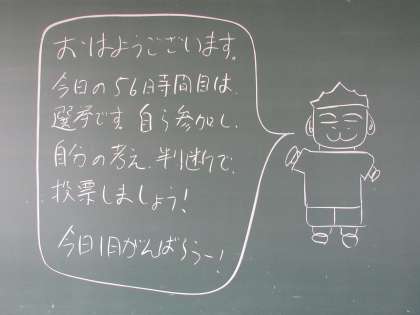 おはようございます。
今日の56時間目は、
選挙です。自ら参加し、
自分の考え、判断で、
投票しましょう!
今日1日がんばろうー!